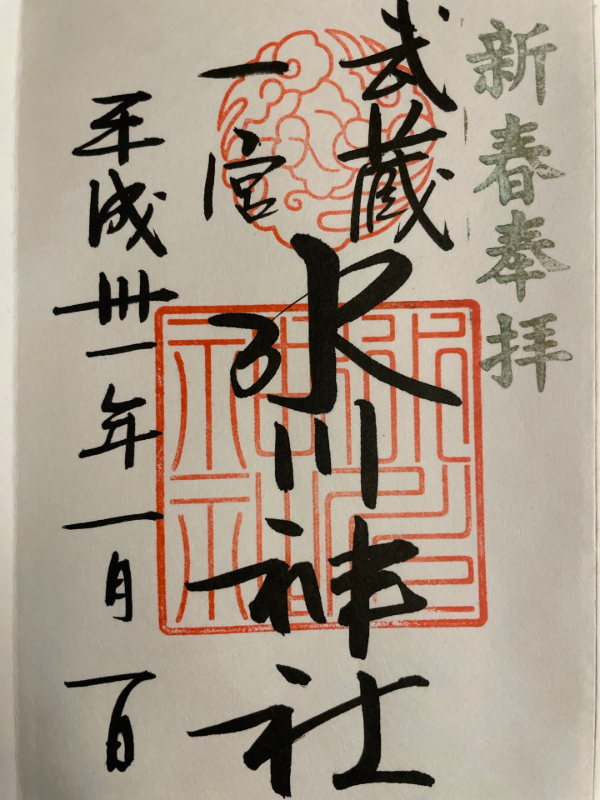 新春奉拝
武蔵
一宮
氷川神社
氷川
神社
平成卅一年一月一日